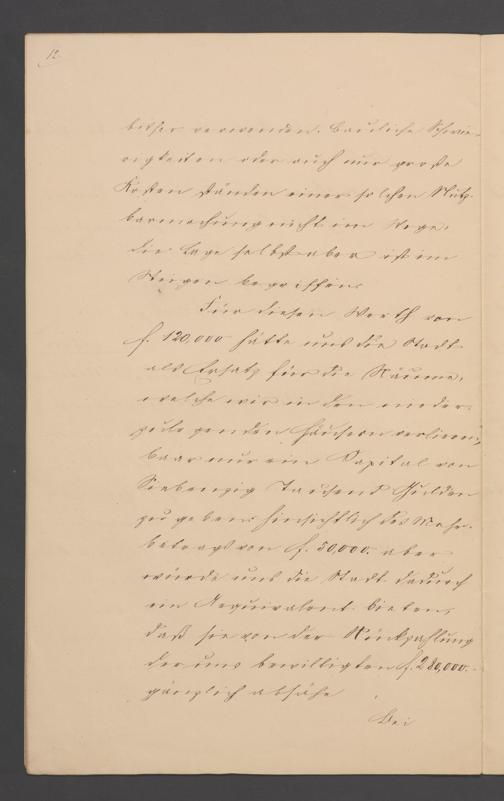 12.
besser verwenden. Bauliche Schwie-
rigkeiten oder auch nur große
Kosten ständen einer solchen Nutz-
barmachung nicht im Wege,
die Lage selbst aber ist im
Steigen begriffen.
Für diesen Werth von
f. 120,000 hätte uns die Stadt
als Ersatz für die Räume,
welche wir in den nieder-
zulegenden Häusern verlieren,
baar nur ein Kapital von
Siebenzig Tausend Gulden
zu geben; hinsichtlich des Mehr-
betrags von f. 50,000. aber
würde uns die Stadt dadurch
ein Aequivalent bieten,
daß sie von der Rückzahlung
der uns bewilligten f. 280,000.-
gänzlich absähe
Bei